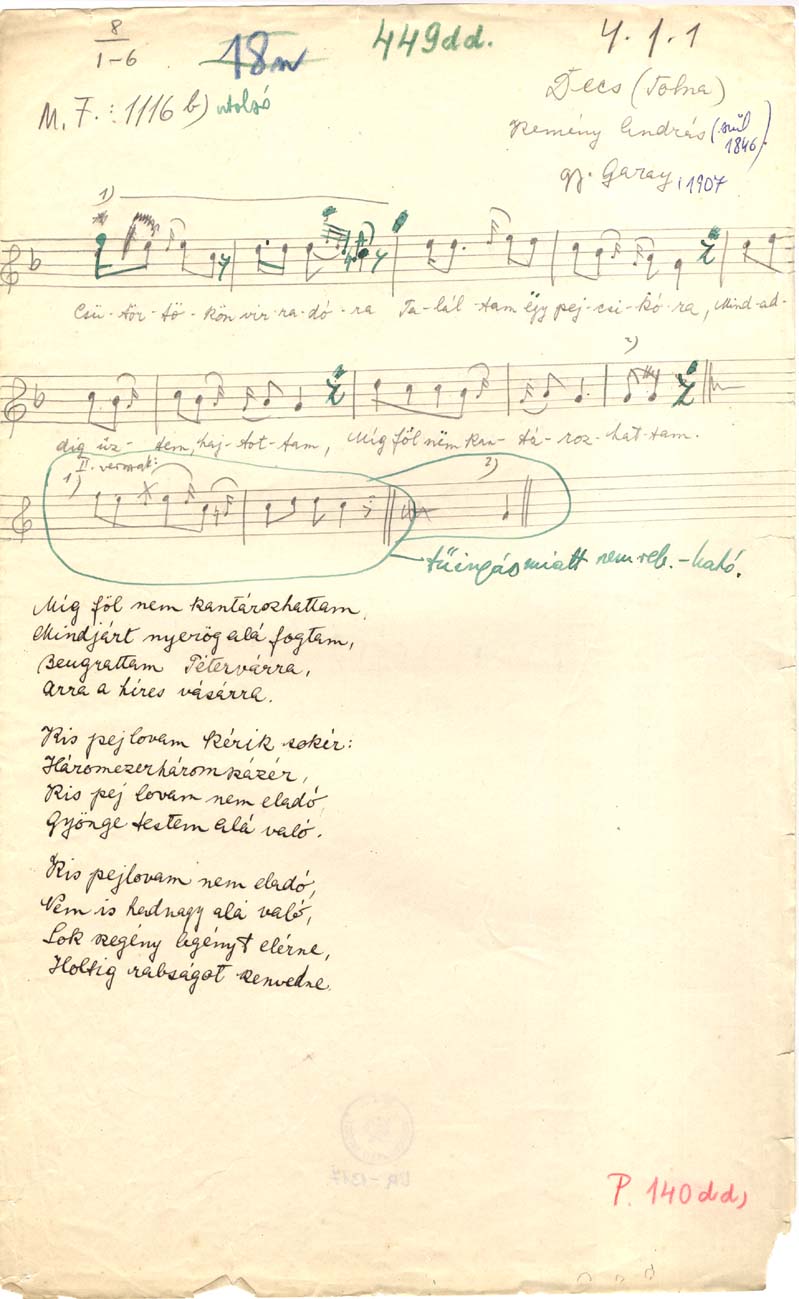 8
1-6
18
449dd.
4.1.1
M. F.: 1116 b) utolsó
Decs (Tolna)
Kemény András (szül 1846)
gy. Garay, 1907
1)
Csü-tör-tö-kön vir-ra-dó-ra Ta-lál-tam ëgy pej-csi-kó-ra, Mind-ad-
2)
dig űz-tem, haj-tot-tam, Míg föl nëm kan-tá-roz-hat-tam.
II. versszak:
1)
2)
tűingás miatt nem reb.-ható.
Míg föl nem kantározhattam,
Mindjárt nyerög alá fogtam,
Beugrattam Pétervárra,
Arra a híres vásárra.
Kis pejlovam kérik sokér:
Háromezerháromszázér,
Kis pej lovam nem eladó,
Gyönge testem alá való.
Kis pejlovam nem eladó,
Nem is hadnagy alá való,
Sok szegény legényt elérne,
Holtig rabságot szenvedne.
P. 140dd,